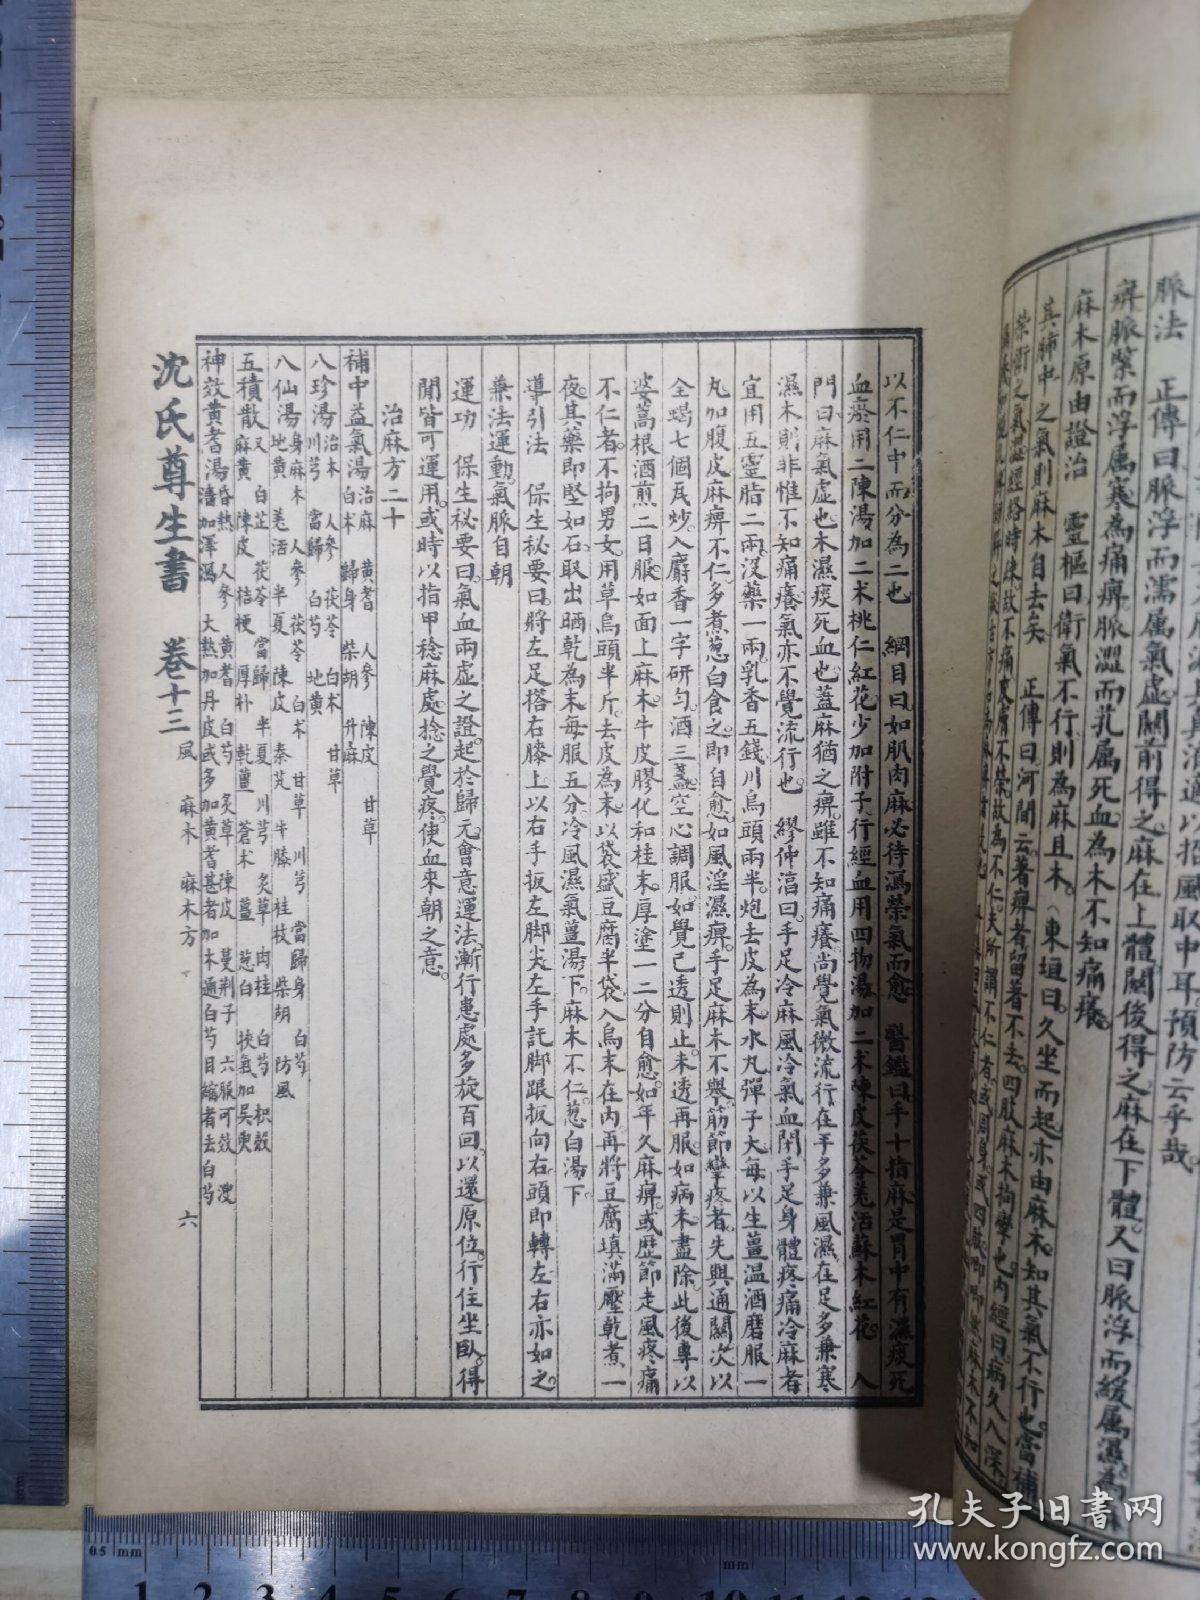 脈法　正傳曰脈浮而濡属氣虛關前得之麻在上體關後得之麻在下體又曰脈浮而緩属濕為麻
痺脈緊而浮属寒為痛痺脈澀而芤属死血為木不知痛癢
麻木原由證治　靈樞曰衛氣不行則為麻且木　東垣曰久坐而起亦由麻木知其氣不行也當補
其肺中之氣則麻木自去矣　正傳曰河間云著痺者留著不去四肢麻木拘攣也內經曰病久入深
以不仁中而分為二也　綱目曰如肌肉麻必待瀉榮氣而愈　醫鑑曰手十指麻是胃中有濕痰死
血瘀用二陳湯加二朮桃仁紅花少加附子行經血用四物湯加二朮陳皮茯苓羌活蘇木紅花　入
門曰麻氣虛也木濕痰死血也蓋麻猶之痺雖不知痛癢尚覺氣微流行在手多兼風濕在足多兼寒
濕木則非惟不知痛癢氣亦不覺流行也　繆仲淳曰手足冷麻風冷氣血閉手足身體疼痛冷麻者
宜用五靈脂二兩沒藥一兩乳香五錢川烏頭兩半炮去皮為末水丸彈子大每以生薑温酒磨服一
丸如腹皮麻痹不仁多煮葱白食之即自愈如風淫濕痹手足麻木不舉筋節攣疼者先與通關次以
全蝎七個瓦炒入麝香一字研勻酒三盞空心調服如覺已透則止未透再服如病未盡除此後專以
婆蒿根酒煎二日服如面上麻木牛皮膠化和桂末厚塗一二分自愈如年久麻痹或歷節走風疼痛
不仁者不拘男女用草烏頭半斤去皮為末以袋盛豆腐半袋入烏末在內再將豆腐填滿壓乾煮一
夜其藥即堅如石取出晒乾為末每服五分冷風濕氣薑湯下麻木不仁葱白湯下
導引法　保生秘要曰將左足搭右膝上以右手扳左脚尖左手託脚跟扳向右頭即轉左右亦如之
兼法運動氣脈自朝
運功　保生秘要曰氣血兩虛之證起於歸元會意運法漸行患處多旋百回以還原位行住坐臥得
閒皆可運用或時以指甲稔麻處捻之覺疼使血來朝之意
治麻方二十
補中益氣湯治麻　黃耆　人參　陳皮　甘草　白朮　歸身　柴胡　升麻
八珍湯治木　人參　茯苓　白朮　甘草　川芎　當歸　白芍　地黃
八仙湯身麻木　人參　茯苓　白朮　甘草　川芎　當歸身　白芍　地黃　羌活　半夏　陳皮　秦艽　牛膝　桂枝　柴胡　防風
五積散又　白芷　茯苓　當歸　半夏　川芎　炙草　肉桂　白芍　枳殼　麻黃　陳皮　桔梗　厚朴　乾薑　蒼朮　薑　葱白　挾氣加吳萸
神效黃耆湯　人參　黃耆　白芍　炙草　陳皮　蔓荆子　六服可效　溲濇加澤瀉　大熱加丹皮或多加黃耆甚者加木通白芍目縮者去白芍
沈氏尊生書　卷十三　風　麻木　麻木方　六
孔夫子旧書网
www.kongfz.com
0.5 mm
1 2 3 4 5 6 7 8 9 10 11 12 13